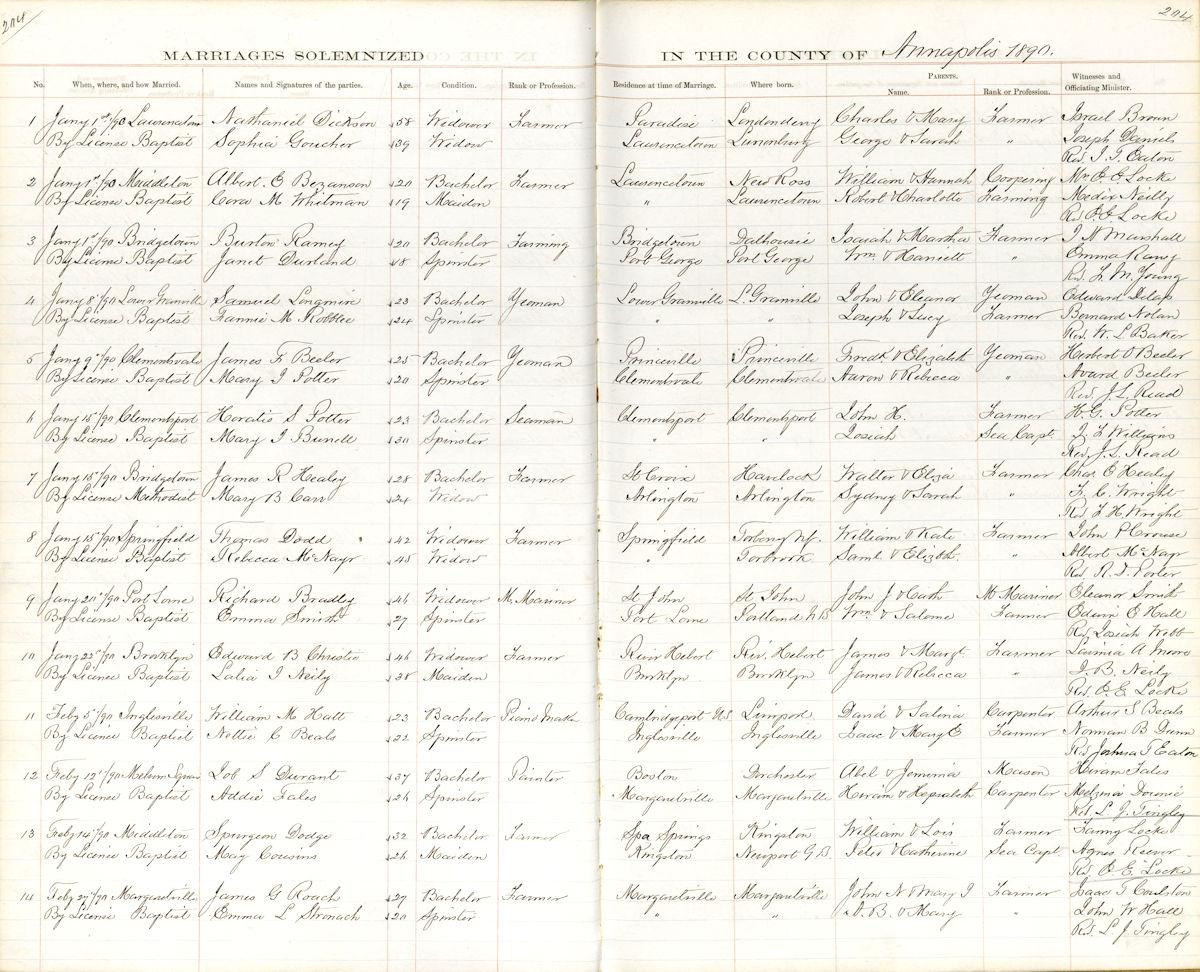 204
204
MARRIAGES SOLEMNIZED IN THE COUNTY OF Annapolis 1890.
No. When, where, and how Married. Names and Signatures of the parties. Age. Condition. Rank or Profession. Residence at time of Marriage. Where born. PARENTS. Name. Rank or Profession. Witnesses and Officiating Minister.
1 Jany 1st/90 Lawrencetown Nathaniel Dickson 58 Widower Farmer Paradise Londonderry Charles & Mary Farmer Israel Brown
By License Baptist Sophia Goucher 39 Widow Lawrencetown Lunenburg George & Sarah " Joseph Daniels
Rev. J. T. Eaton
2 Jany 1st/90 Middleton Albert E Bezanson 20 Bachelor Farmer Lawrencetown New Ross William & Hannah Coopering Mrs E E Locke
By License Baptist Cora M Whitman 19 Maiden " Lawrencetown Robert & Charlotte Farming Neily
Rev E E Locke
3 Jany 1st/90 Bridgetown Burton Ramey 20 Bachelor Farming Bridgetown Dalhousie Isaiah & Martha Farmer J N Marshall
By License Baptist Janet Durland 18 Spinster Port George Port George Wm. & Harriett " Emma
Rev. F. M. Young
4 Jany 8"/90 Lower Granville Samuel Longmire 23 Bachelor Yeoman Lower Granville L. Granville John & Eleanor Yeoman Edward Delap
By License Baptist Fannie M Robblee 24 Spinster " " Joseph & Lucy Farmer Bernard Nolan
Rev. W. L. Baker
5 Jany 9"/90 Clementsvale James F Beeler 25 Bachelor Yeoman Princeville Princeville Fredk & Elizabeth Yeoman Herbert O Beeler
By License Baptist Mary J Potter 20 Spinster Clementsvale Clementsvale Aaron & Rebecca " Avard Beeler
Rev J. L. Read
6 Jany 15"/90 Clementsport Horatio S Potter 23 Bachelor Seaman Clementsport Clementsport John H. Farmer H. G. Potter
By License Baptist Mary J Burrell 30 Spinster " " Josiah Sea Capt. Williams
Rev. J. L. Read
7 Jany 15"/90 Bridgetown James R Healey 28 Bachelor Farmer St Croix Havelock Walter & Eliza Farmer Chas. E Healey
By License Methodist Mary B Carr 24 Widow Arlington Arlington Sydney & Sarah " F. C. Wright
Rev F. H. Wright
8 Jany 15"/90 Springfield Thomas Dodd 42 Widower Farmer Springfield William & Kate Farmer John P Crouse
By License Baptist Rebecca McNayr 45 Widow " Torbrook Saml & Elizbth. " Albert McNayr
Rev. R. D. Porter
9 Jany 20"/90 Port Lorne Richard Bradley 46 Widower M. Mariner St John St John John J & Cath. M Mariner Eleanor Smith
By License Baptist Emma Smith 27 Spinster Port Lorne Portland N B Wm. & Salome Farmer Edwin E Hall
Rev. Josiah Webb
10 Jany 22"/90 Brooklyn Edward B Christie 46 Widower Farmer River Hebert Riv. Hebert James & Margt. Farmer Lavinia A Moore
By License Baptist Lalia J Neily 38 Maiden Brooklyn Brooklyn James & Rebecca " J. B. Neily
Rev. E. E. Locke
11 Feby 5"/90 Inglesville William M Hatt 23 Bachelor Piano Maker Cambridgeport U.S. David & Salina Carpenter Arthur S Beals
By License Baptist Nettie C Beals 22 Spinster Inglesville Inglesville Isaac & Mary E Farmer Norman B Dunn
Rev Joshua T Eaton
12 Feby 12"/90 Melvern Square Job S Durant 37 Bachelor Painter Boston Dorchester Abel & Jemimia Mason Hiram Fales
By License Baptist Addie Fales 26 Spinster Margaretville Margaretville Hiram & Hepsabeth Carpenter
Rev. L. J. Tingley
13 Feby 14"/90 Middleton Spurgeon Dodge 32 Bachelor Farmer Spa Springs Kingston William & Lois Farmer Fanny Locke
By License Baptist May Cousins 26 Maiden Kingston Newport G. B. Peter & Catherine Sea Capt. Agnes Reevor
Rev. E. E. Locke
14 Feby 27"/90 Margaretville James G Roach 27 Bachelor Farmer Margaretville Margaretville John N & Mary J Farmer Isaac T Coulston
By License Baptist Emma L Stronach 20 Spinster " " D. B. & Mary " John W Hall
Rev. L. J. Tingley